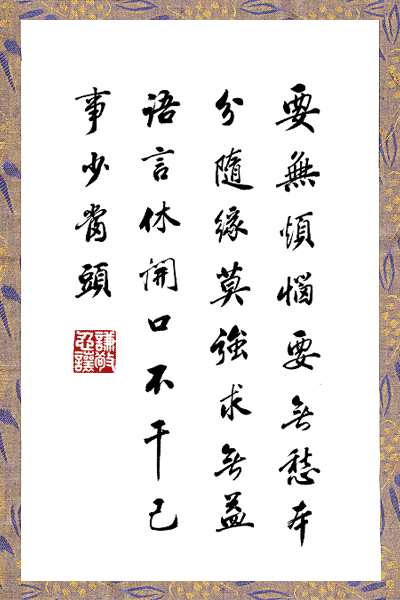 要無煩惱要无愁本
分隨緣莫強求无益
語言休開口不干己
事少當頭
謙敬
礼讓